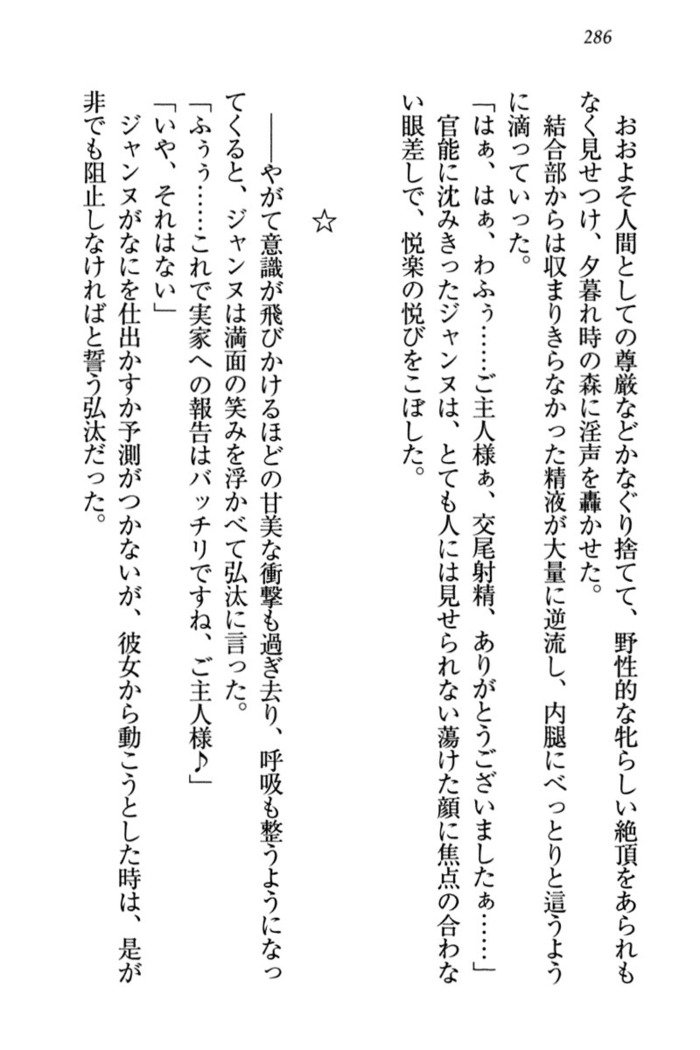 286
おおよそ人間としての尊厳などかなぐり捨てて、野性的な牝らしい絶頂をあられも
なく見せつけ、夕暮れ時の森に淫声を轟かせた。
結合部からは収まりきらなかった精液が大量に逆流し、内腿にべっとりと這うよう
に滴っていった。
「はぁ、はぁ、わふぅ……ご主人様ぁ、交尾射精、ありがとうございましたぁ……」
官能に沈みきったジャンヌは、とても人には見せられない蕩けた顔に焦点の合わな
い眼差しで、悦楽の悦びをこぼした。
☆
――やがて意識が飛びかけるほどの甘美な衝撃も過ぎ去り、呼吸も整うようになっ
てくると、ジャンヌは満面の笑みを浮かべて弘汰に言った。
「ふぅぅ……これで実家への報告はバッチリですね、ご主人様♪」
「いや、それはない」
ジャンヌがなにを仕出かすか予測がつかないが、彼女から動こうとした時は、是が
非でも阻止しなければと誓う弘汰だった。